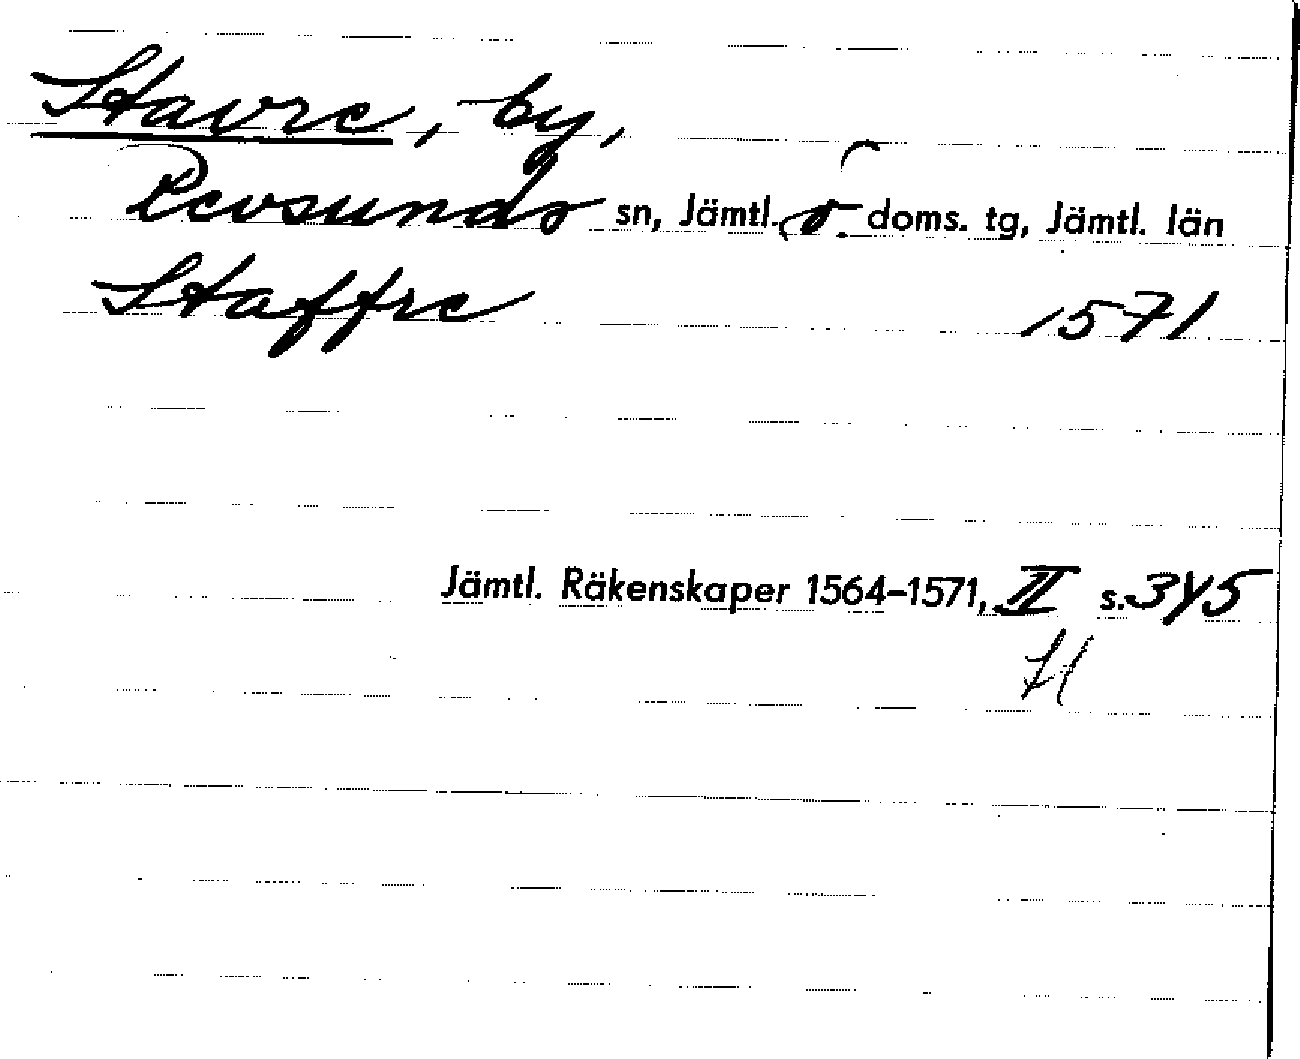 Stavre, by,
Revsunds sn, Jämtl. ö. doms. tg, Jämtl. län
Staffre 1571
Jämtl. Räkenskaper 1564-1571, II s. 345